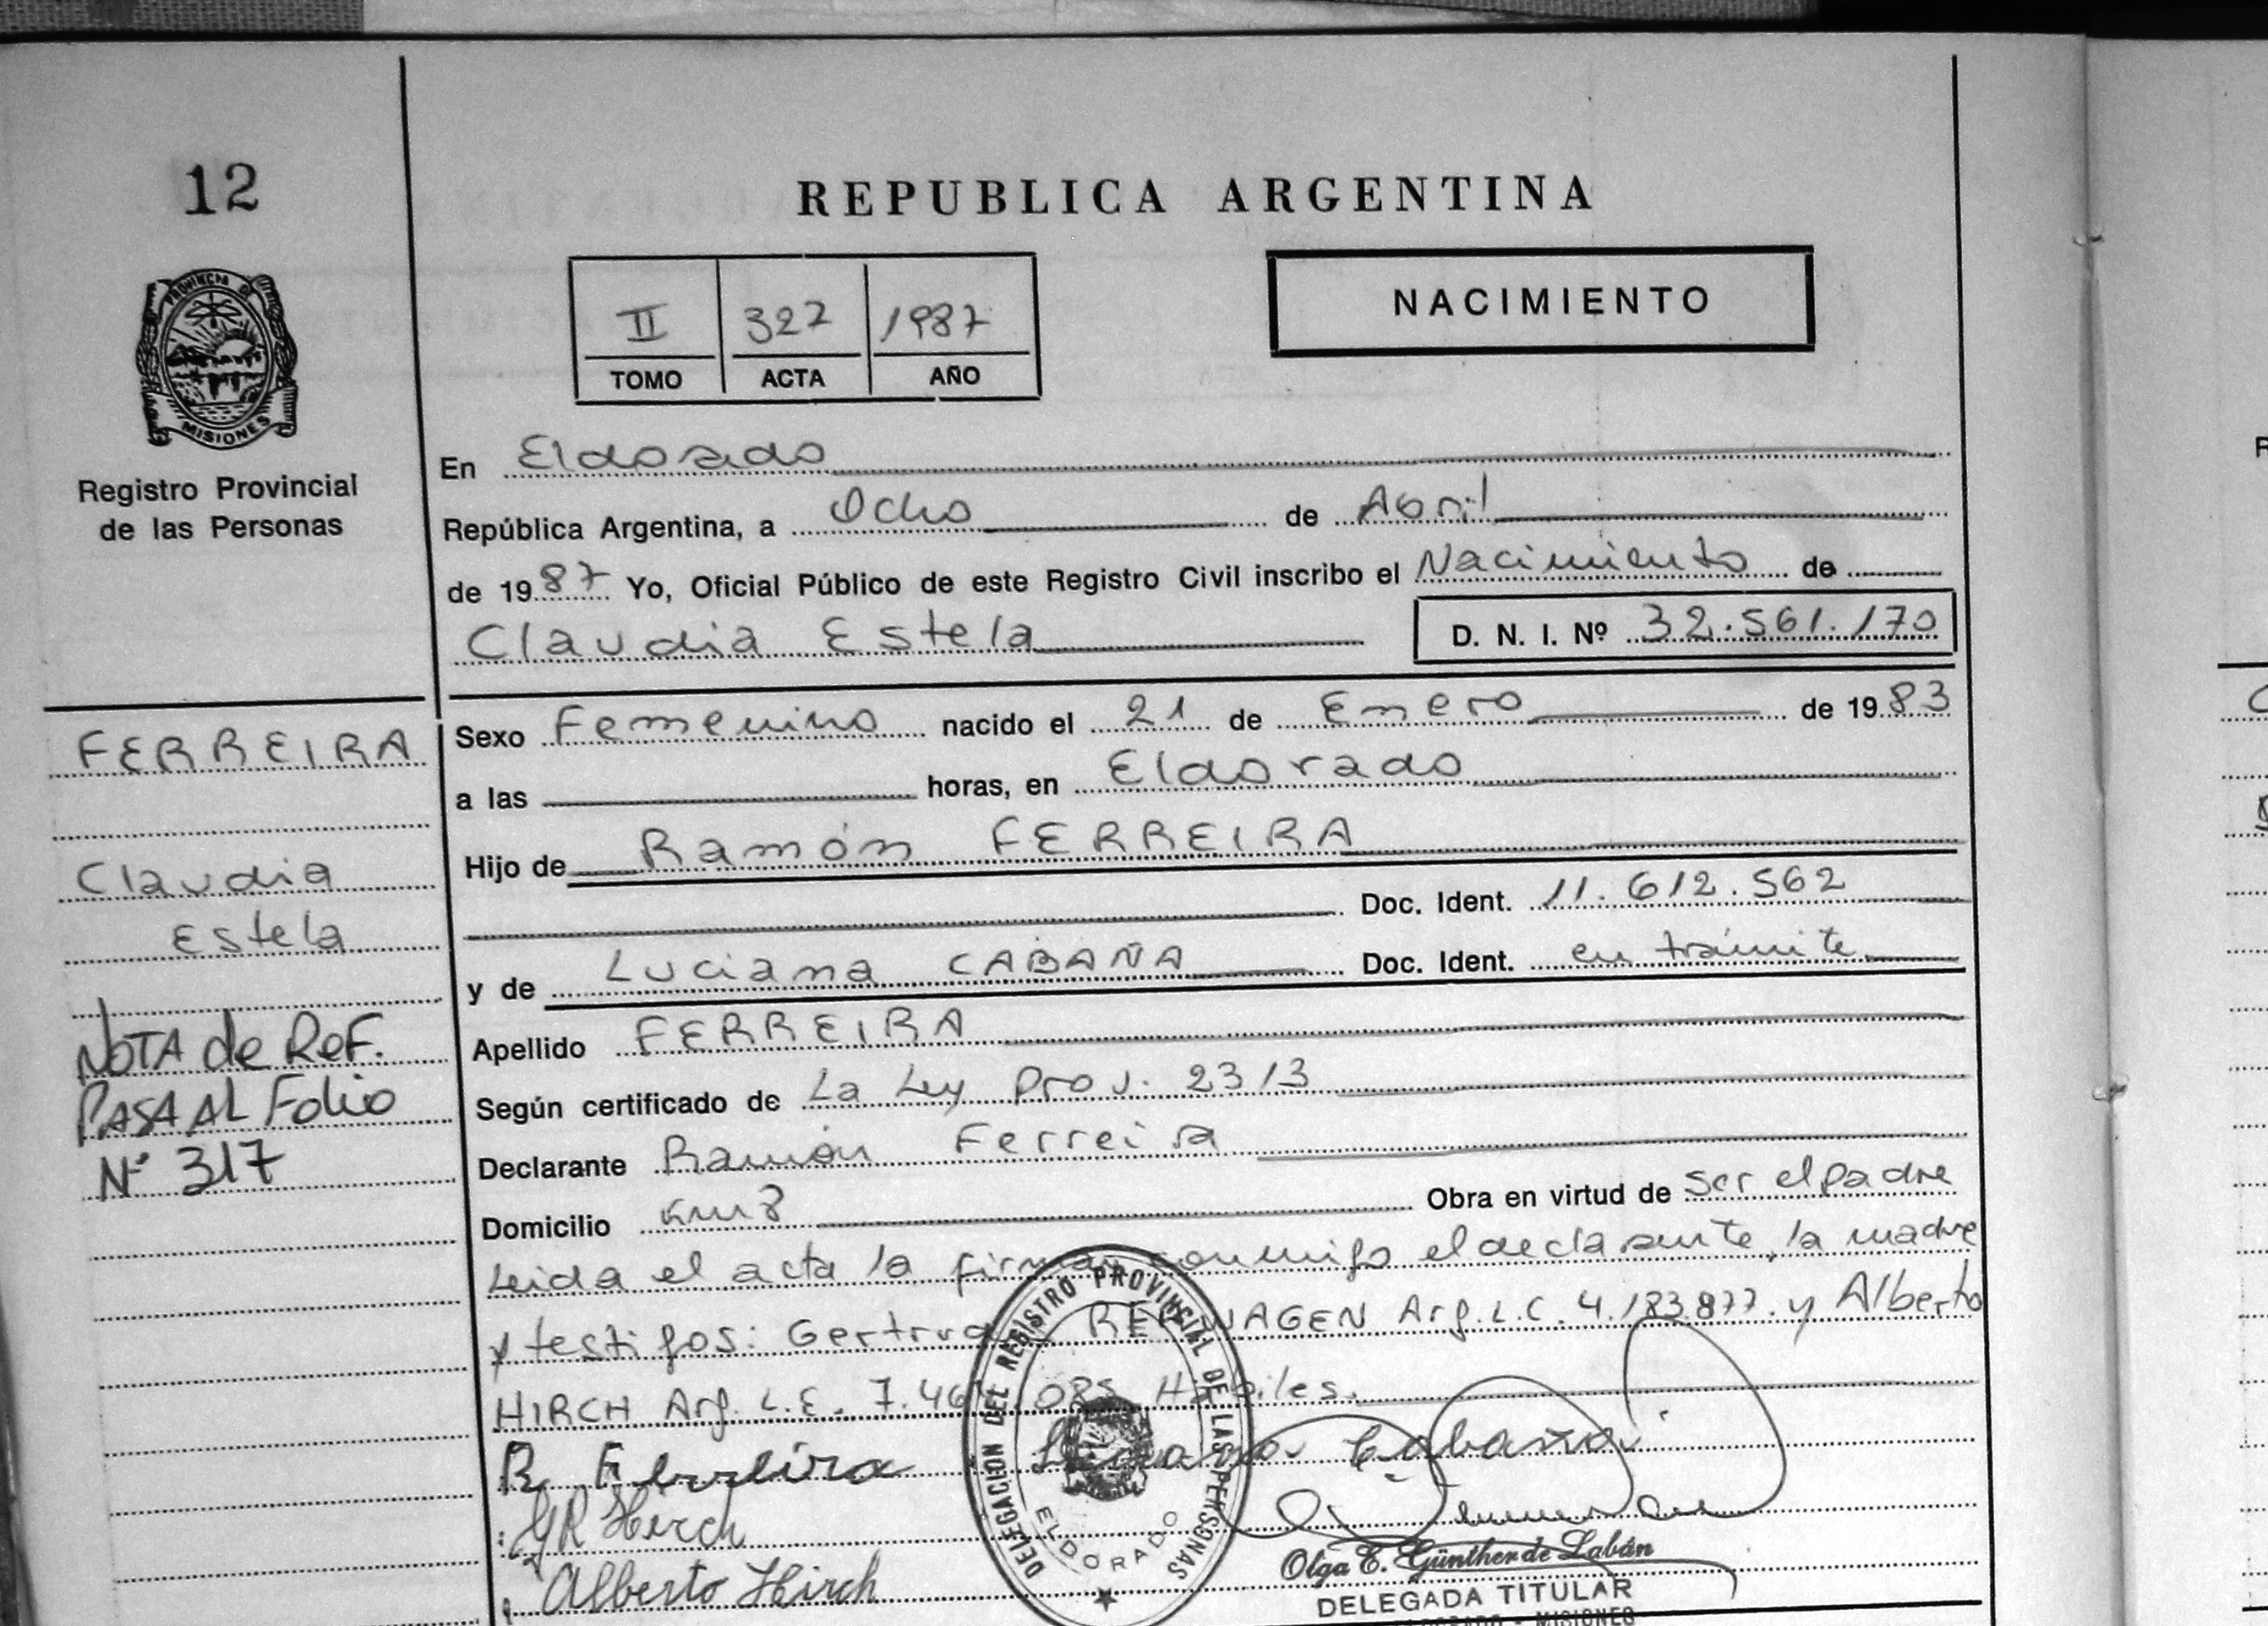 12
REPUBLICA ARGENTINA
PROVINCIA D
MISIONES
Registro Provincial
de las Personas
II 327 1987
TOMO ACTA AÑO
NACIMIENTO
En Eldorado
República Argentina, a Ocho de Abril
de 1987 Yo, Oficial Público de este Registro Civil inscribo el Nacimiento de
Claudia Estela D. N. I. Nº 32.561.170
FERREIRA
Claudia
Estela
NOTA de REF.
PASA AL Folio
Nº 317
Sexo Femenino nacido el 21 de Enero de 1983
a las horas, en Eldorado
Hijo de Ramón FERREIRA
Doc. Ident. 11.612.562
y de Luciana CABAÑA Doc. Ident. en trámite
Apellido FERREIRA
Según certificado de La Ley Prov. 2313
Declarante Ramón Ferreira
Domicilio km 8 Obra en virtud de ser el padre
Leida el acta la firman conmigo el declarante, la madre
y testigos: Gertrud Arg. L.C. 4.183.877. y Alberto
HIRCH Arg. L.E. 7.46 085 Hábiles.
R Ferreira Luciana Cabaña
GR Hirch
Alberto Hirch
DELEGACION DEL REGISTRO PROVINCIAL DE LAS PERSONAS
ELDORADO
Olga E. Günther de Labán
DELEGADA TITULAR
ELDORADO - MISIONES